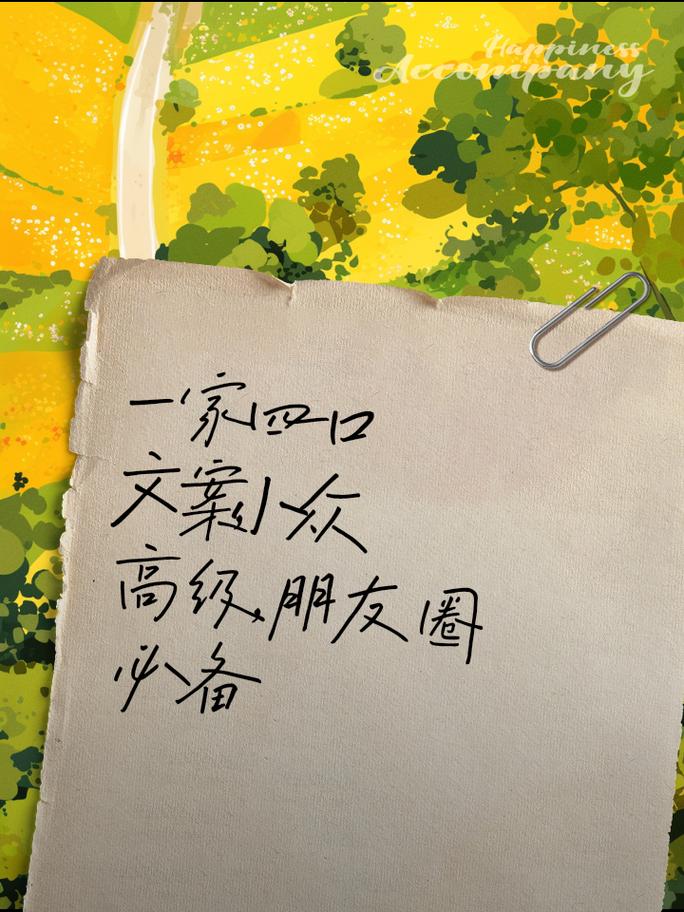 Happiness
Accompany
一家四口
文案小众
高级,朋友圈
必备